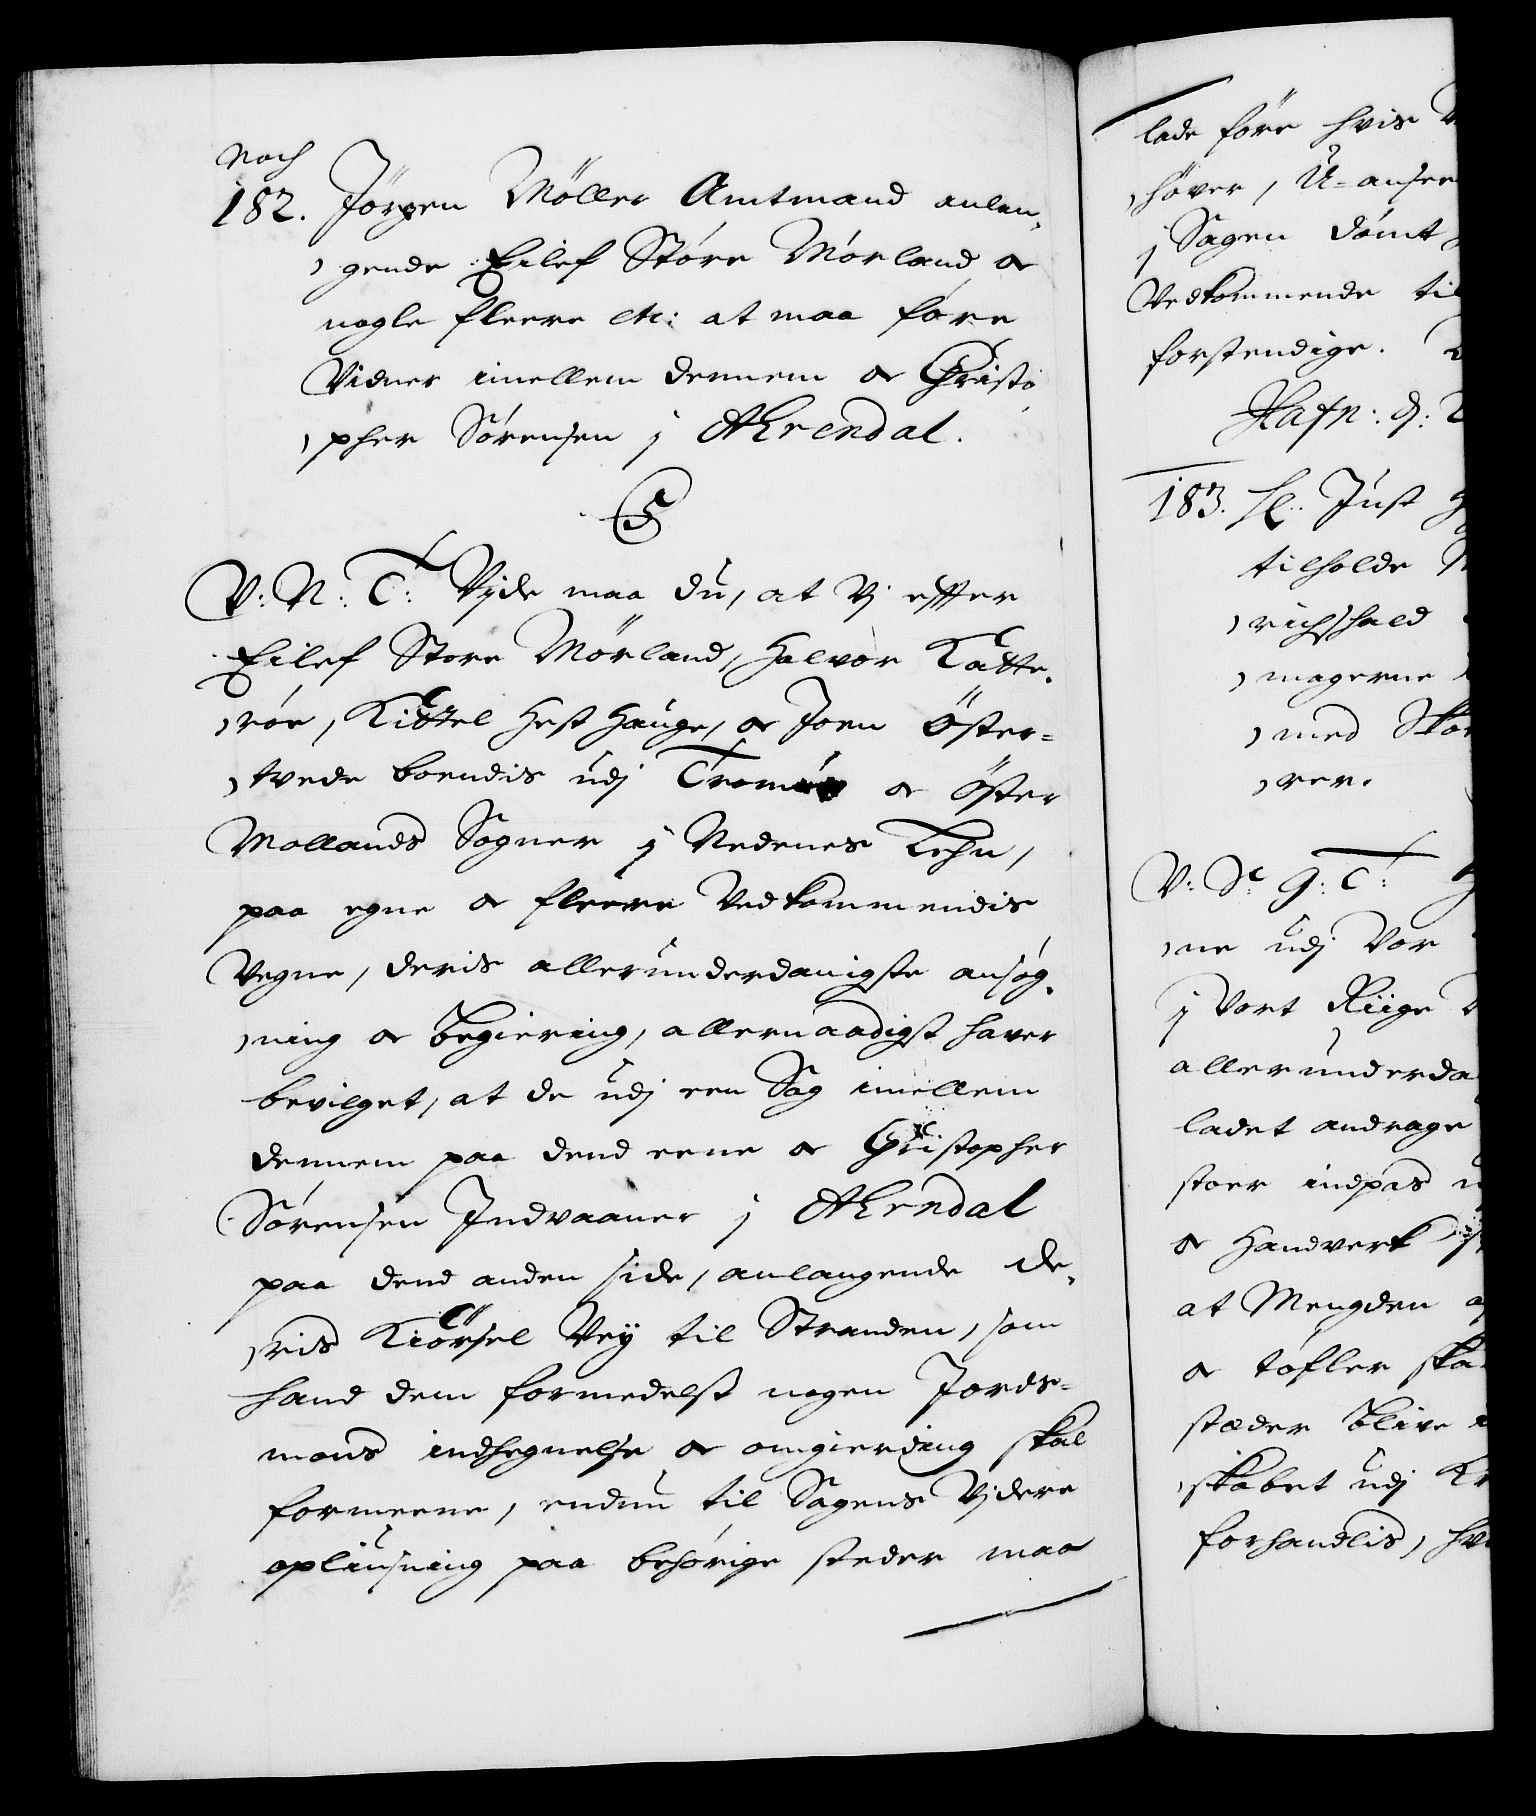 Noch
182. Jörgen Möller Amtmand anlan,
,gende Eilef Störe Mörland, oc
nogle fleere etc: at maa före
Vidner imellem dennem oc Christo
,pher Sörensen j AErendal.
C5
V: N: T: Vjde maa du, at Vj effter
Eilef Store Mörland, Halvor Katte,
,röe, Kittel Hesthauge, oc Joen Öster=
,tvede boendis udj Tromöe oc Öster
Mollands Sogner j Nedenes Lehn,
paa egne oc fleere Vedkommendis
Vegne, deris allerunderdanigste ansög,
,ning oc begiering, allernaadigst haver
bevilget, at de udj een Sag imellem
dennem paa dend eene oc Christopher
Sörensen Indvaaner j AErendal
paa dend anden side, anlangende de,
,ris Kiörsel Vey til Stranden, som
hand dem formedelst nogen Jords=
mons indhegnelse oc omgierding skal
formeene, endnu til Sagens Vjdere
opliusning paa behörige steder maa
lade före hvis
,höver, U=anseet
j Sagen dömt
Vedkommende til
forstendige.
Hafn: d:
183. Sl. Just
tilholde
,richshald
,magerne
,med Skoe
,rer.
V: Sc G: T:
,ne udj Vor
j Vort Riige
allerunderda
ladet andrage
stoer indpas
oc Handverk
at Mengden
oc töfler ska
stæder blive
,skabet udj Kr
forhandlis, hv